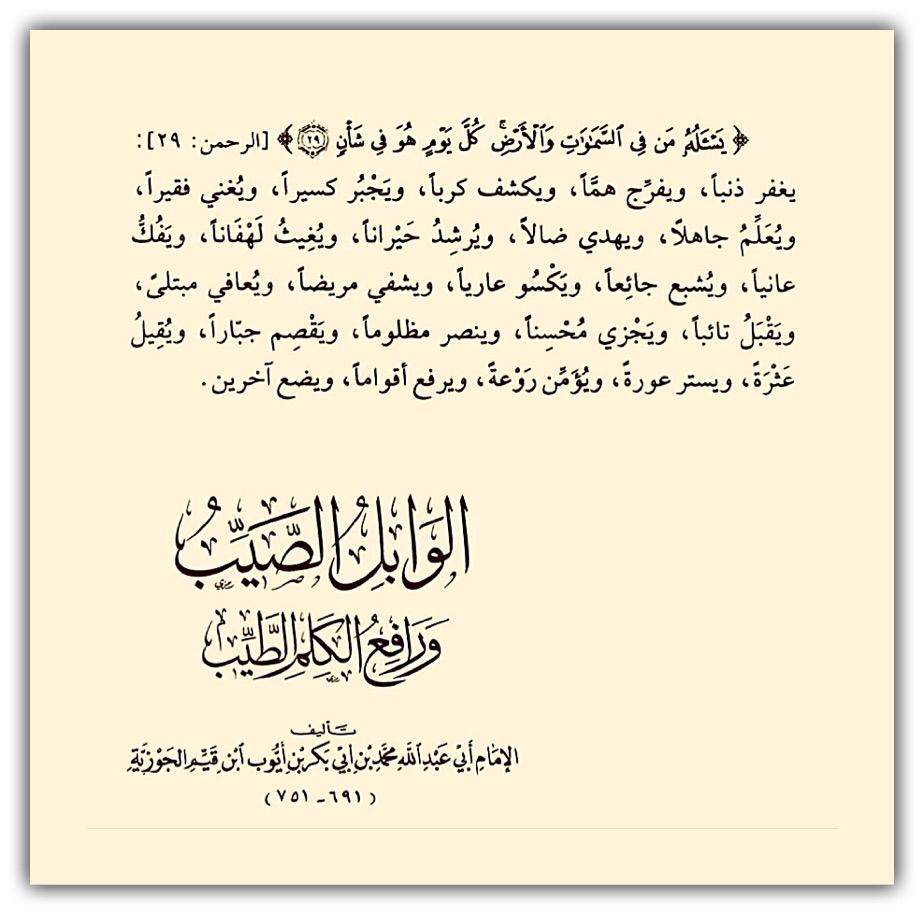 ﴿ يَسْـَٔلُهُۥ مَن فِى ٱلسَّمَـٰوَٰتِ وَٱلْأَرْضِ ۚ كُلَّ يَوْمٍ هُوَ فِى شَأْنٍ ﴿٢٩﴾ ﴾ [الرحمن: ٢٩]:
يغفر ذنباً، ويفرِّج همَّاً، ويكشف كرباً، ويَجْبُر كسيراً، ويُغني فقيراً،
ويُعَلِّمُ جاهلاً، ويهدي ضالاً، ويُرشِدُ حَيْراناً، ويُغِيثُ لَهْفَاناً، ويَفُكُّ
عانياً، ويُشبع جائِعاً، ويَكْسُو عارياً، ويشفي مريضاً، ويُعافي مبتلىً،
ويَقْبَلُ تائباً، ويَجْزي مُحْسِناً، وينصر مظلوماً، ويَقْصِم جبّاراً، ويُقِيلُ
عَثْرَةً، ويستر عورةً، ويُؤَمِّن رَوْعةً، ويرفع أقواماً، ويضع آخرين.
الوَابِلُ الصَّيِّبُ
وَرَافِعُ الكَلِمِ الطَّيِّبِ
تأليف
الإمَامِ أَبِي عَبْدِ اللَّهِ مُحَمَّدِ بْنِ أَبِي بَكْرِ بْنِ أَيُّوب ابْنِ قَيِّمِ الجَوْزِيَّةِ
(٦٩١ - ٧٥١)